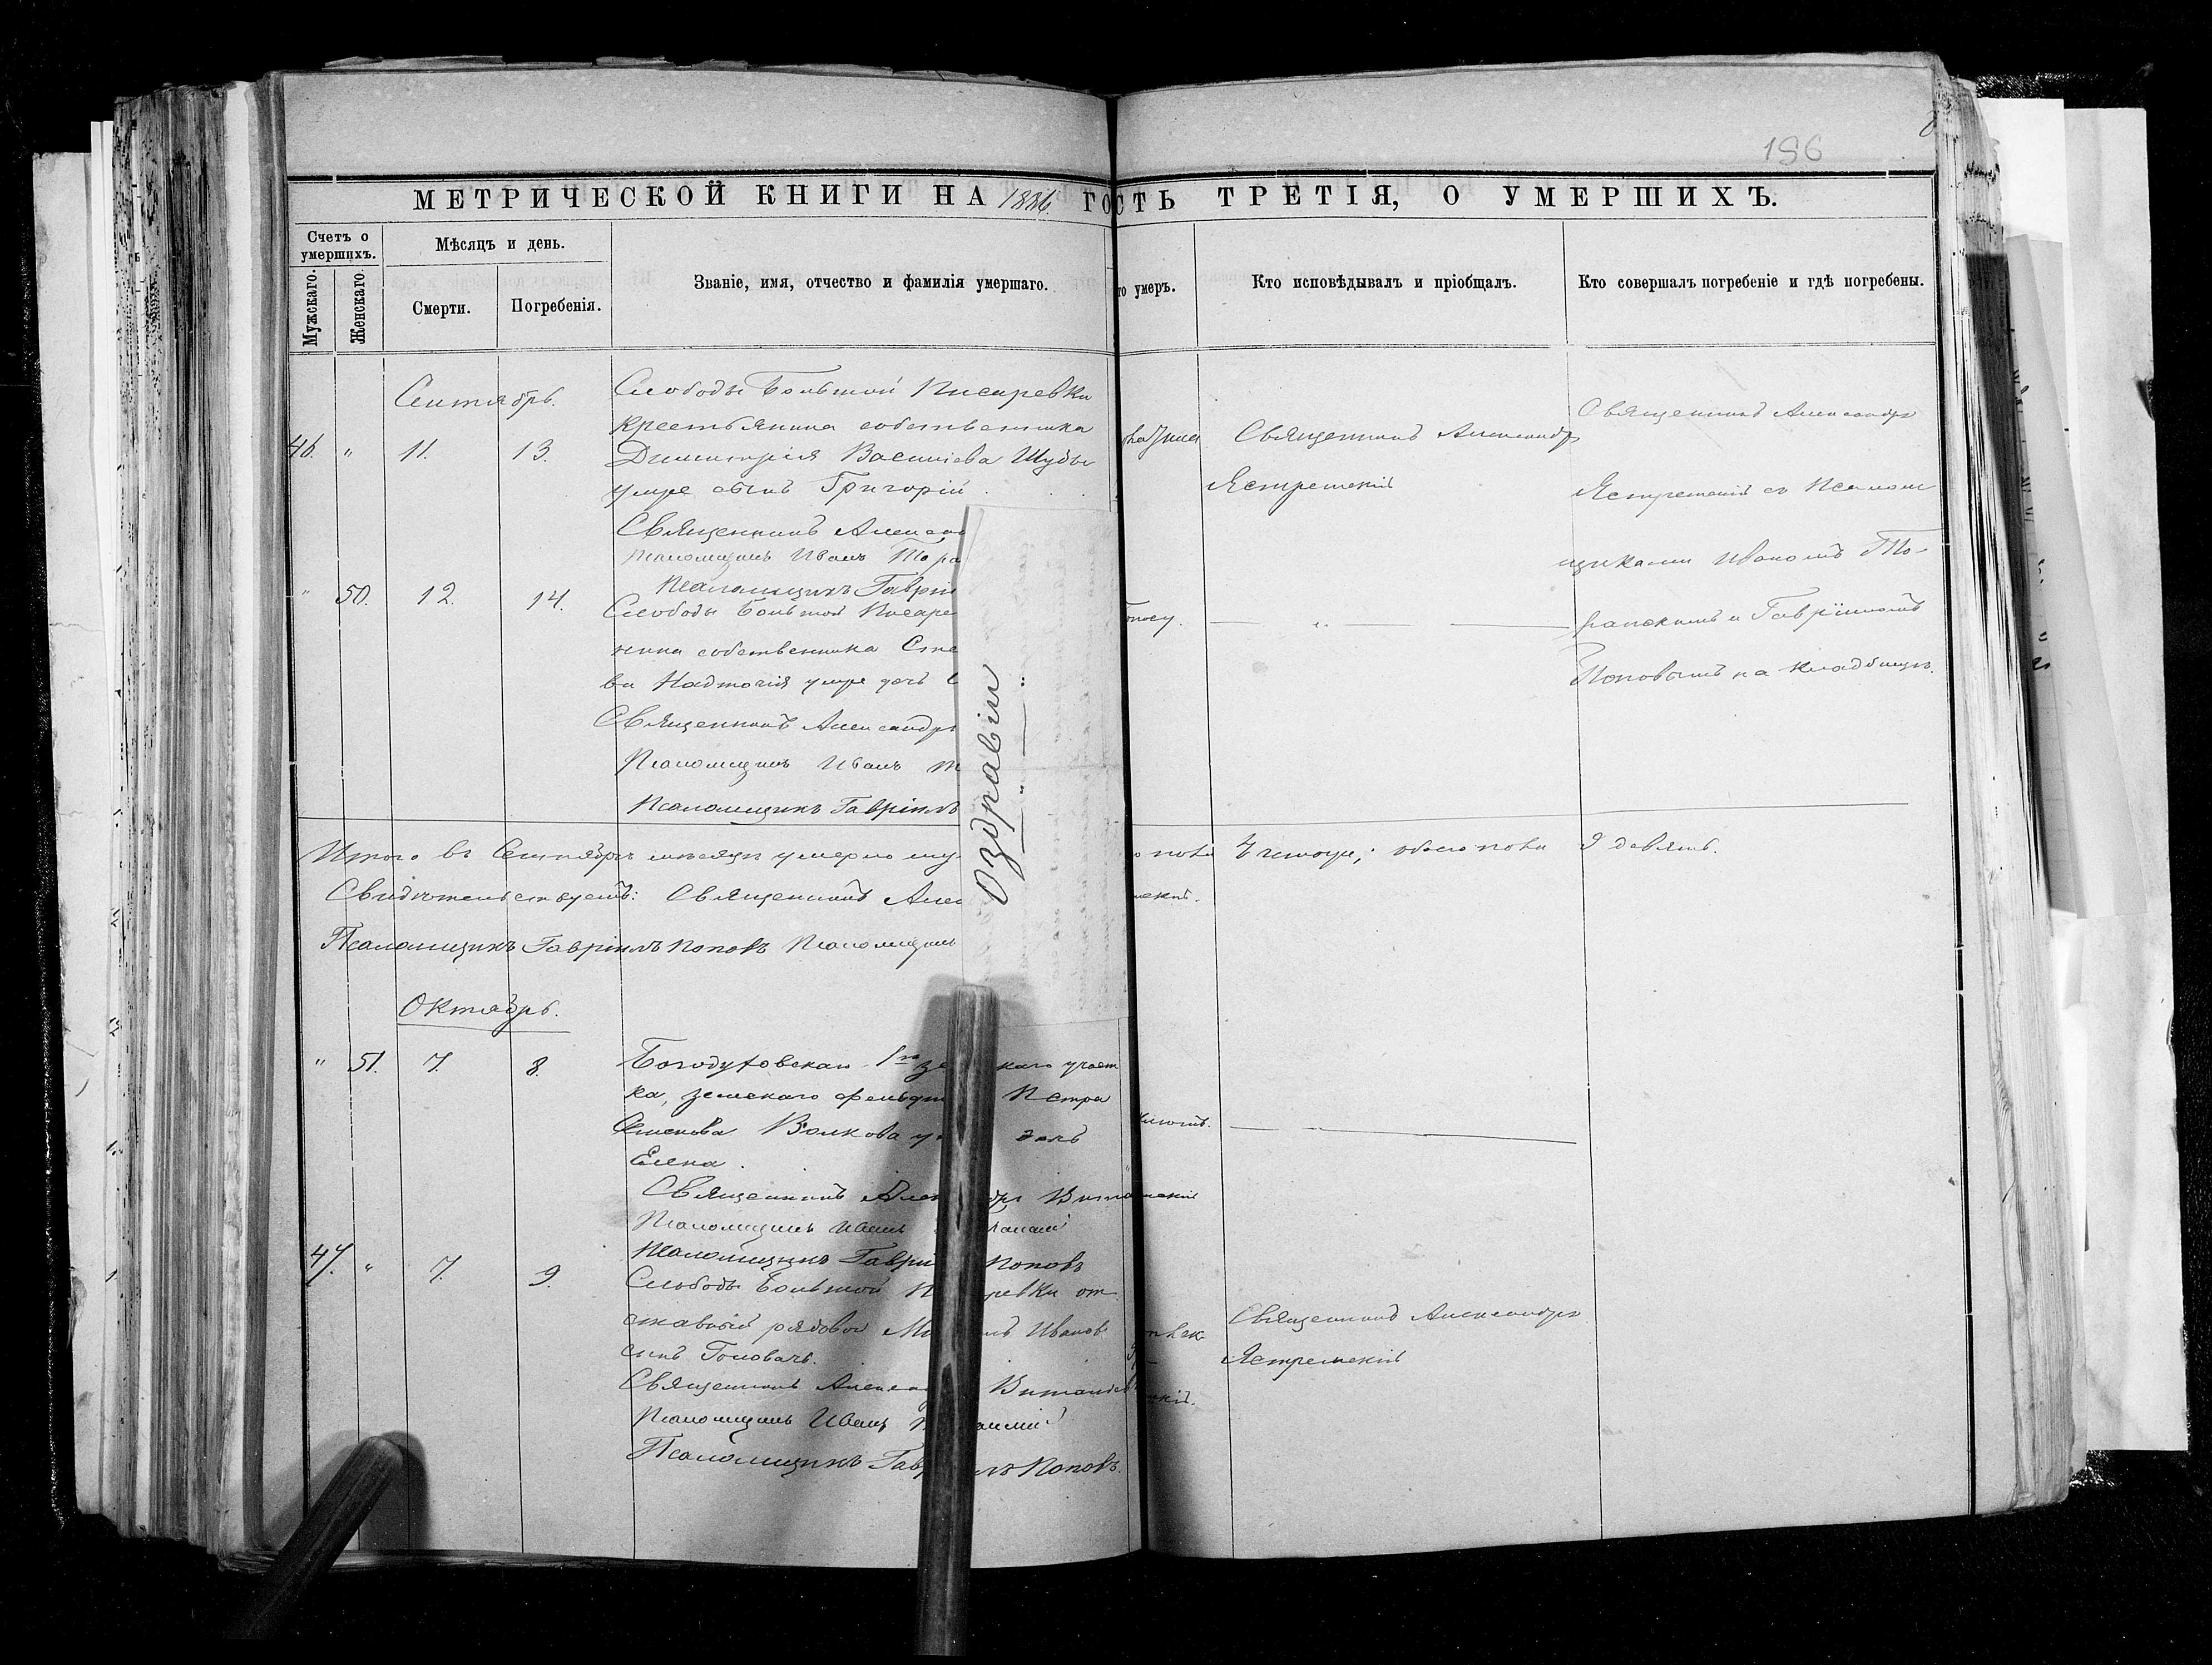 196
МЕТРИЧЕСКОЙ КНИГИ НА 1886 ГО
СТЬ ТРЕТІЯ, О УМЕРШИХЪ.
Счетъ о умершихъ.
Мужскаго.
Женскаго.
Мѣсяцъ и день.
Смерти.
Погребенія.
Званіе, имя, отчество и фамилія умершаго.
го умеръ.
Кто исповѣдывалъ и пріобщалъ.
Кто совершалъ погребеніе и гдѣ погребены.
Сентябрь.
46. " 11. 13.
Слободы Большой Писаревки
крестьянина собственника
Димитрія Васильева Шубы
умре сынъ Григорій
Священникъ
Псаломщикъ Иванъ
Псаломщикъ Гавріи
Священникъ Александръ
Ястремскій
Священникъ Александръ
Ястремскій съ Псалом
щиками Иваномъ То-
ранскимъ и Гавріиломъ
Поповымъ на кладбищѣ.
" 50. 12. 14.
Слободы Большой Писаре
нина собственника Сте
ва Надточія умре дочь
Священникъ Александръ
Псаломщикъ Иванъ
Псаломщикъ Гавріилъ
О здравіи
Итого въ Сентябрѣ мѣсяцѣ умерло му
пола 4 четыре; обоего пола 9 девять.
Свидѣтельствуемъ: Священникъ Алек
Псаломщикъ Гавріилъ Поповъ Псаломщикъ
Октябрь.
" 51. 7. 8.
Богодуховскаго 1го каго участ
ка, земскаго фельдш Петра
Семенова Волкова у дочь
Елена.
Священникъ Алек дръ
Псаломщикъ Иванъ
Псаломщикъ Гаврі Поповъ
47. " 7. 9.
Слободы Большой П ревки от
ставный рядовой Ми лъ Иванов
сынъ Головачъ.
Священникъ
Псаломщикъ Иванъ
Псаломщикъ Гавр лъ Поповъ.
Священникъ Александръ
Ястремскій